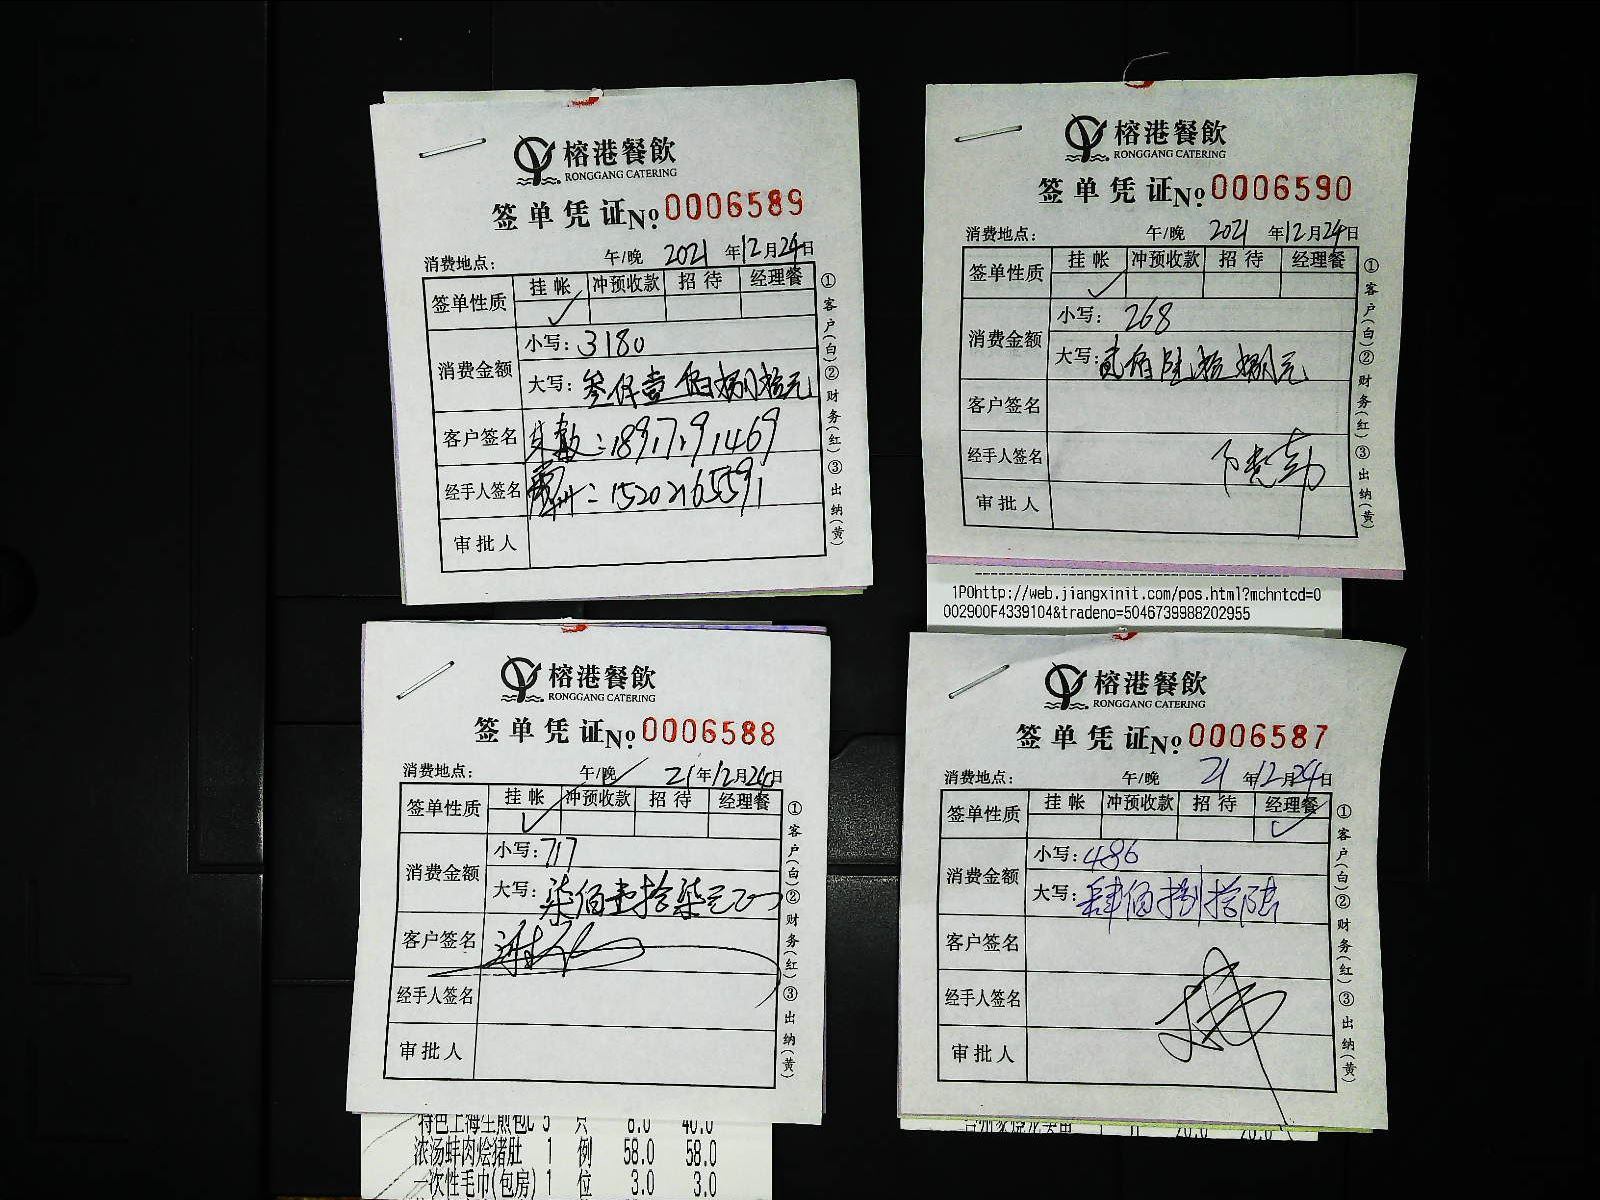 榕港餐飲
RONGGANG CATERING
签单凭证No.0006589
消费地点: 午/晚 2021年12月24日
签单性质 挂帐 冲预收款 招待 经理餐
✓
消费金额 小写: 3180
大写: 叁仟壹佰捌拾元
客户签名 :18917191469
经手人签名 :15202165591
审批人
①客户(白)②财务(红)③出纳(黄)
榕港餐飲
RONGGANG CATERING
签单凭证No.0006590
消费地点: 午/晚 2021年12月24日
签单性质 挂帐 冲预收款 招待 经理餐
✓
消费金额 小写: 268
大写: 贰佰陆拾捌元
客户签名
经手人签名
审批人
①客户(白)②财务(红)③出纳(黄)
1P0http://web.jiangxinit.com/pos.html?mchntcd=0
002900F4339104&tradeno=5046739988202955
榕港餐飲
RONGGANG CATERING
签单凭证No.0006588
消费地点: 午/晚✓ 21年12月24日
签单性质 挂帐 冲预收款 招待 经理餐
✓
消费金额 小写: 717
大写: 柒佰壹拾柒元
客户签名
经手人签名
审批人
①客户(白)②财务(红)③出纳(黄)
特色上海生煎包 5 只 8.0 40.0
浓汤蚌肉烩猪肚 1 例 58.0 58.0
一次性毛巾(包房) 1 位 3.0 3.0
榕港餐飲
RONGGANG CATERING
签单凭证No.0006587
消费地点: 午/晚 21年12月24日
签单性质 挂帐 冲预收款 招待 经理餐
✓
消费金额 小写: 486
大写: 肆佰捌拾陆
客户签名
经手人签名
审批人
①客户(白)②财务(红)③出纳(黄)